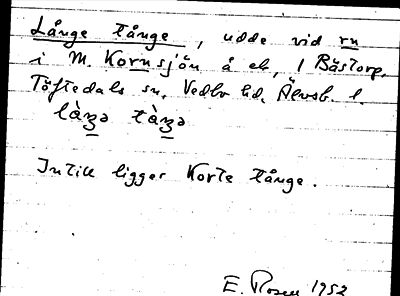 Långe tånge, udde vid rn
i M. Kornsjön å ek, 1 Bästorp,
Töftedals sn, Vedbo hd, Älvsb. l.
làŋə tàŋə
Intill ligger Korte tånge.
E. Rosen 1952